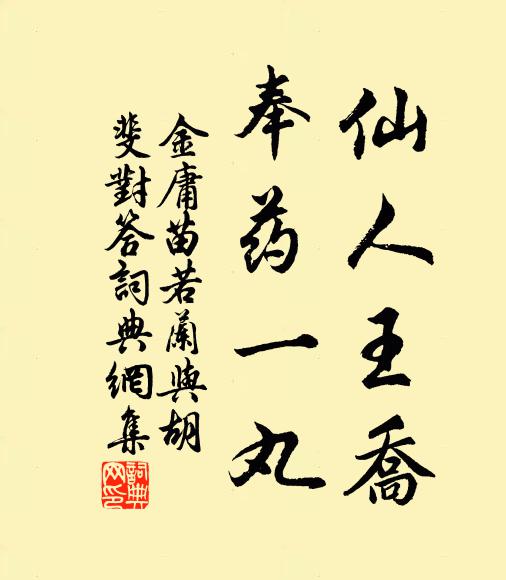 仙人王喬
奉药一丸
金庸苗若蘭與胡
斐對答詞典網集
詞典網印